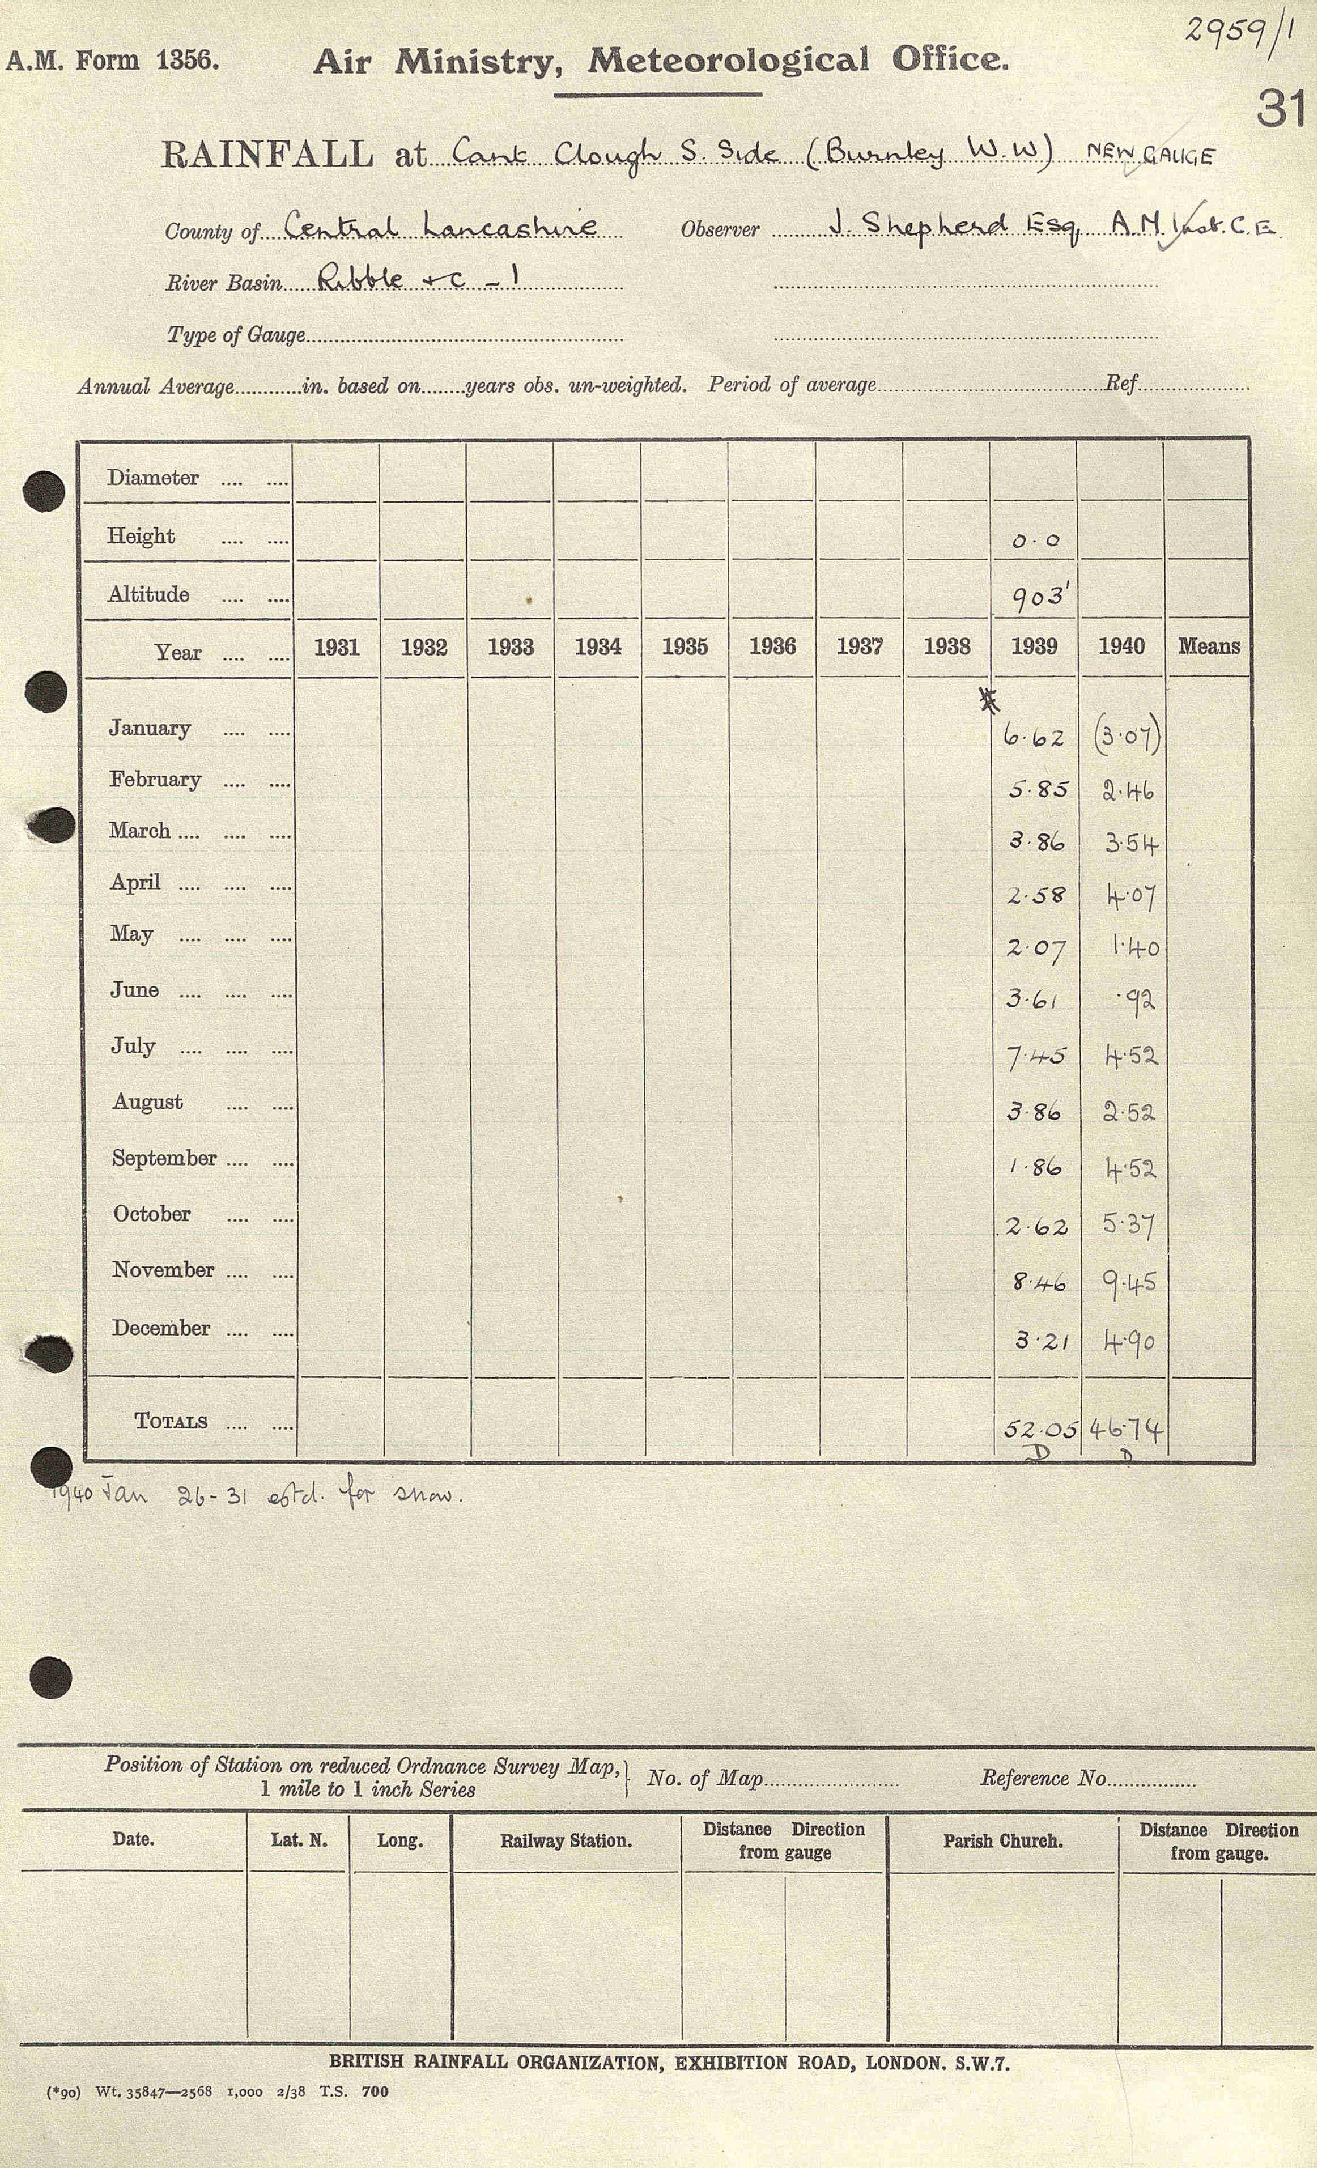 2959/1
A.M. Form 1356. Air Ministry, Meteorological Office.
31
RAINFALL at Cant Clough S. Side (Burnley W.W) NEW GAUGE
County of Central Lancashire Observer J. Shepherd Esq. A.M.Inst.C.E.
River Basin Ribble &c - 1
Type of Gauge
Annual Average in. based on years obs. un-weighted. Period of average Ref
Diameter
Height 0.0
Altitude 903'
Year 1931 1932 1933 1934 1935 1936 1937 1938 1939 1940 Means
January 6.62 (3.07)
February 5.85 2.46
March 3.86 3.54
April 2.58 4.07
May 2.07 1.40
June 3.61 .92
July 7.45 4.52
August 3.86 2.52
September 1.86 4.52
October 2.62 5.37
November 8.46 9.45
December 3.21 4.90
TOTALS 52.05 46.74
D D
1940 Jan 26-31 estd. for snow.
Position of Station on reduced Ordnance Survey Map, } No. of Map Reference No.
1 mile to 1 inch Series
Date. Lat. N. Long. Railway Station. Distance Direction from gauge Parish Church. Distance Direction from gauge.
BRITISH RAINFALL ORGANIZATION, EXHIBITION ROAD, LONDON. S.W.7.
(*90) Wt. 35847—2568 1,000 2/38 T.S. 700